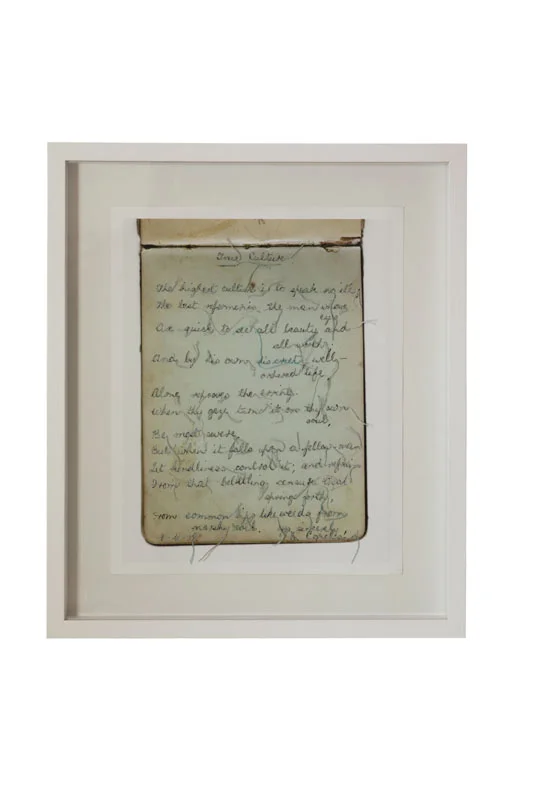 True Culture
The highest culture is to speak no ill;
The best reformer is the man whose
eyes
Are quick to see all beauty and
all worth;
And by his own discreet, well-
ordered life,
Alone reproves the erring.
When thy gaze turns it on thy own
soul,
Be most severe,
But when it falls upon a fellow man
Let kindliness control it; and refrain
From that belittling censure that
springs forth;
From common lips like weeds from
marshy soil. sincerely